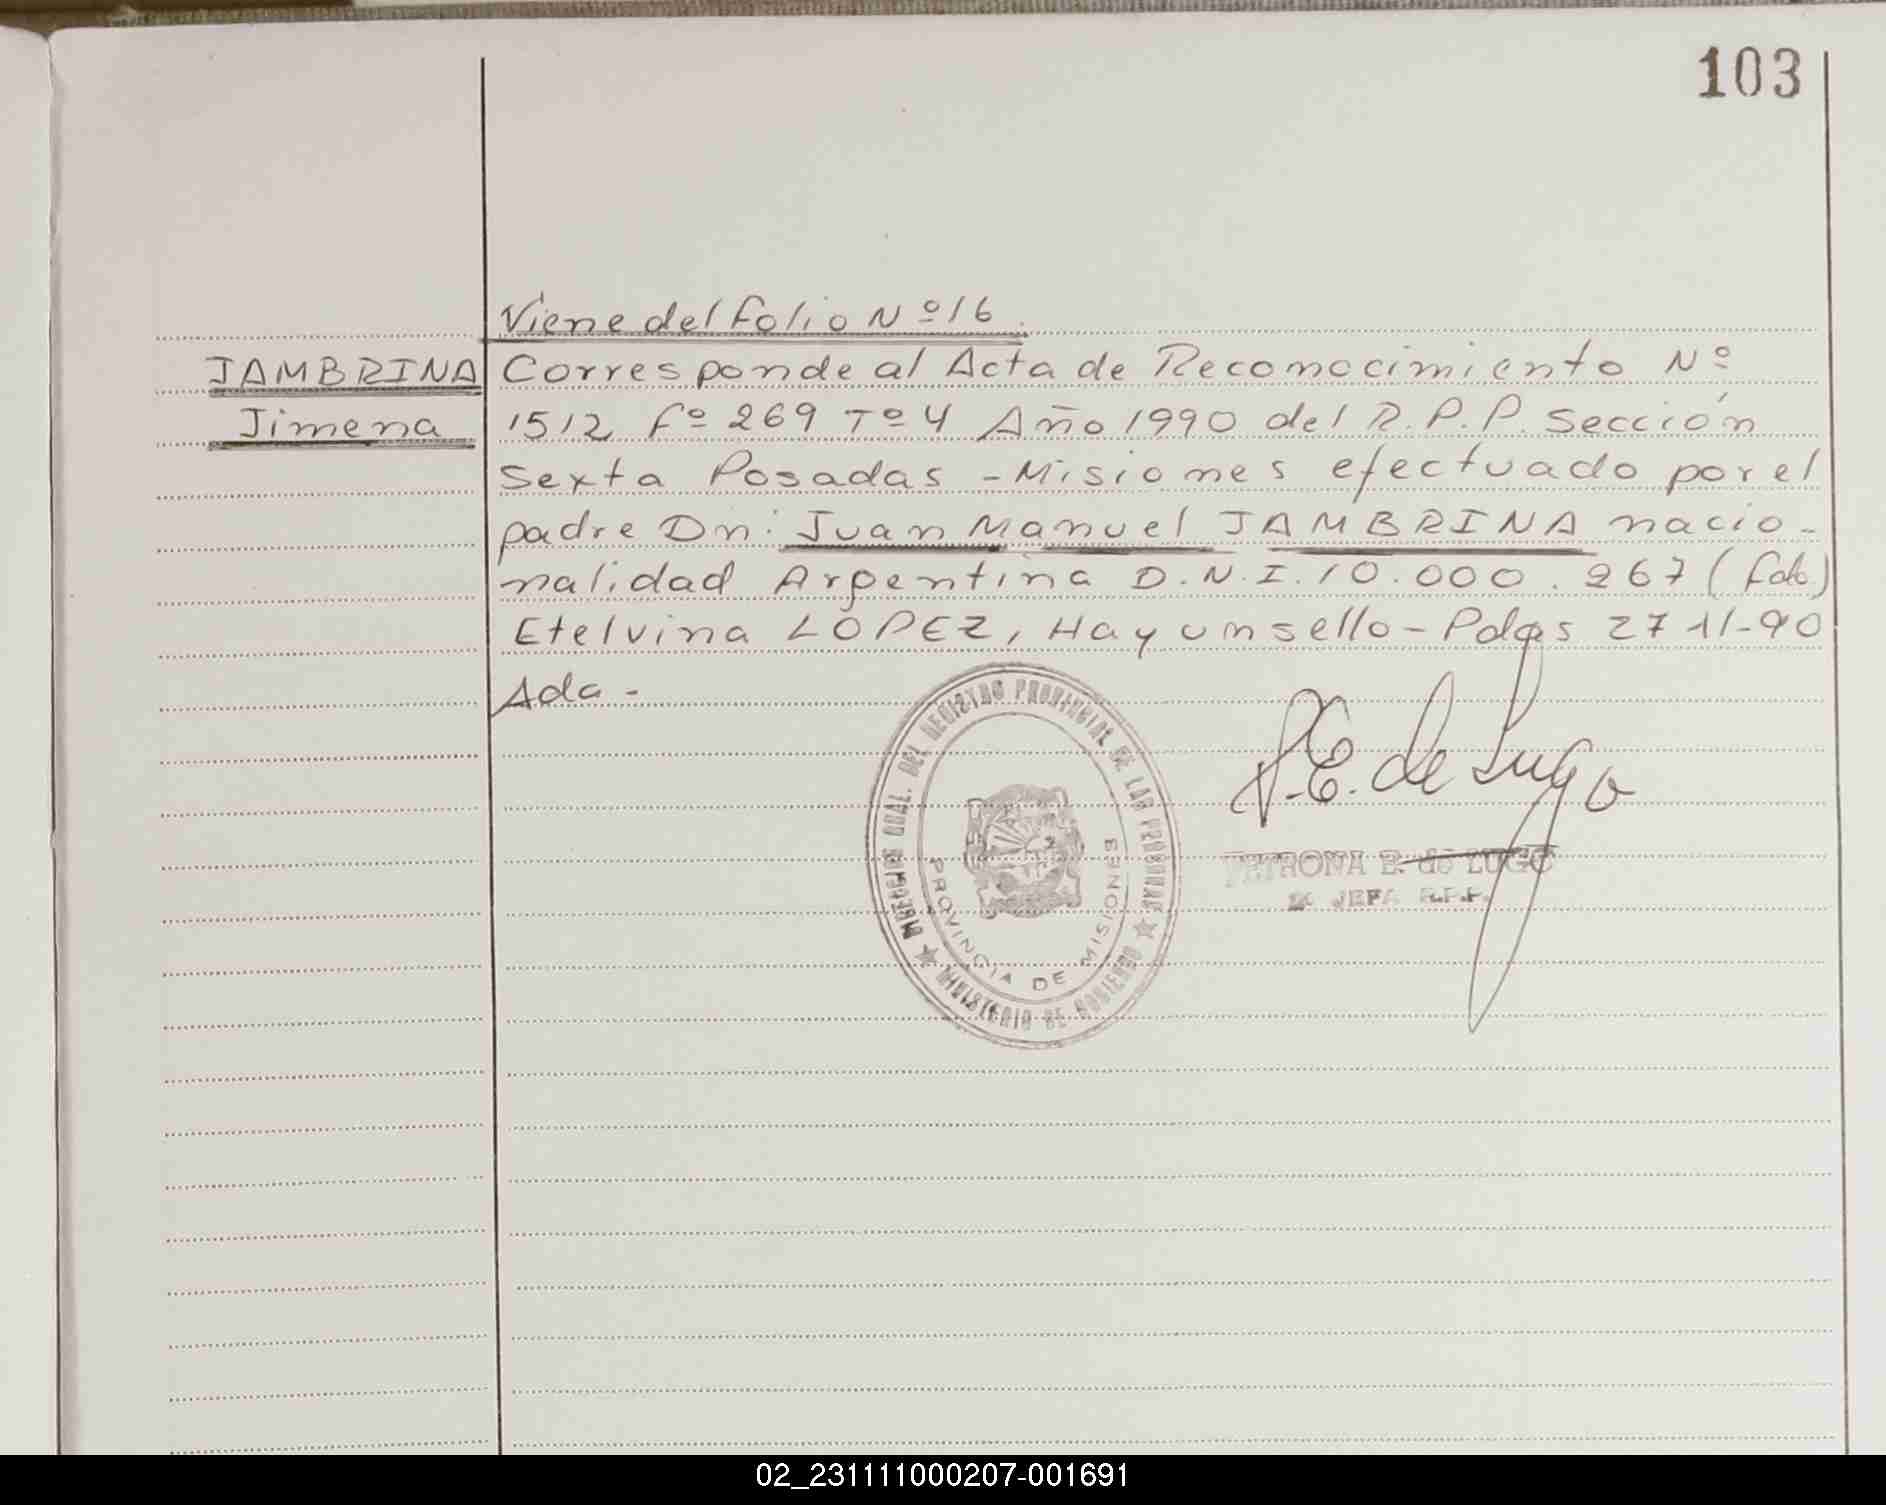 103
Viene del folio Nº 16.
JAMBRINA
Jimena
Corresponde al Acta de Reconocimiento Nº
1512 fº 269 Tº 4 Año 1990 del R.P.P. Sección
Sexta Posadas - Misiones efectuado por el
padre Dn: Juan Manuel JAMBRINA nacio-
nalidad Argentina D.N.I. 10.000.267 (fdo)
Etelvina LOPEZ, Hay un sello - Pdas 27-11-90
Ada -
DIRECCION GRAL. DEL REGISTRO PROVINCIAL DE LAS PERSONAS
MINISTERIO DE GOBIERNO
PROVINCIA DE MISIONES
P.E. de Lugo
PETRONA E. de LUGO
JEFA R.P.P.
02_231111000207-001691